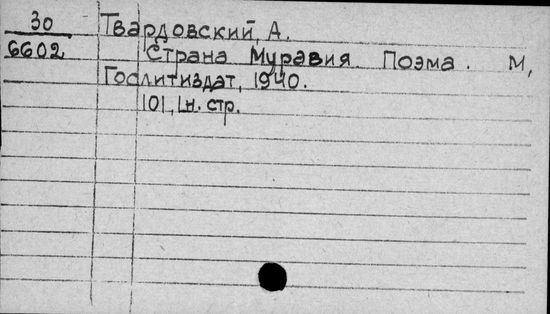 30 Твардовский, А.
6602 Страна Муравия. Поэма. М,
Гослитиздат, 1940.
101, 1н. стр.